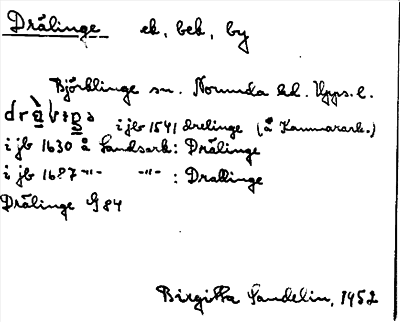 Drälinge ek, bek, by
Björklinge sn. Norunda hd. Upps. l.
i jb 1541 drelinge (å Kammarark.)
i jb 1630 å Landsark: Drälinge
i jb 1687 -"- -"- : Drällinge
Drälinge G 84
Birgitta Sandelin, 1952